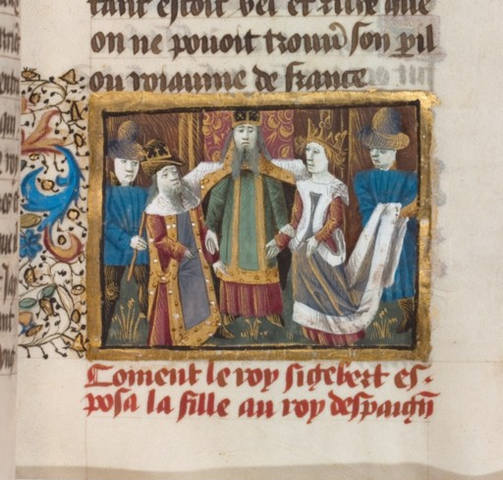 tant estoit bel et riche que
on ne pouoit trouuer son pil
ou roiaume de france
Coment le roy sigebert es-
posa la fille au roy despaigne